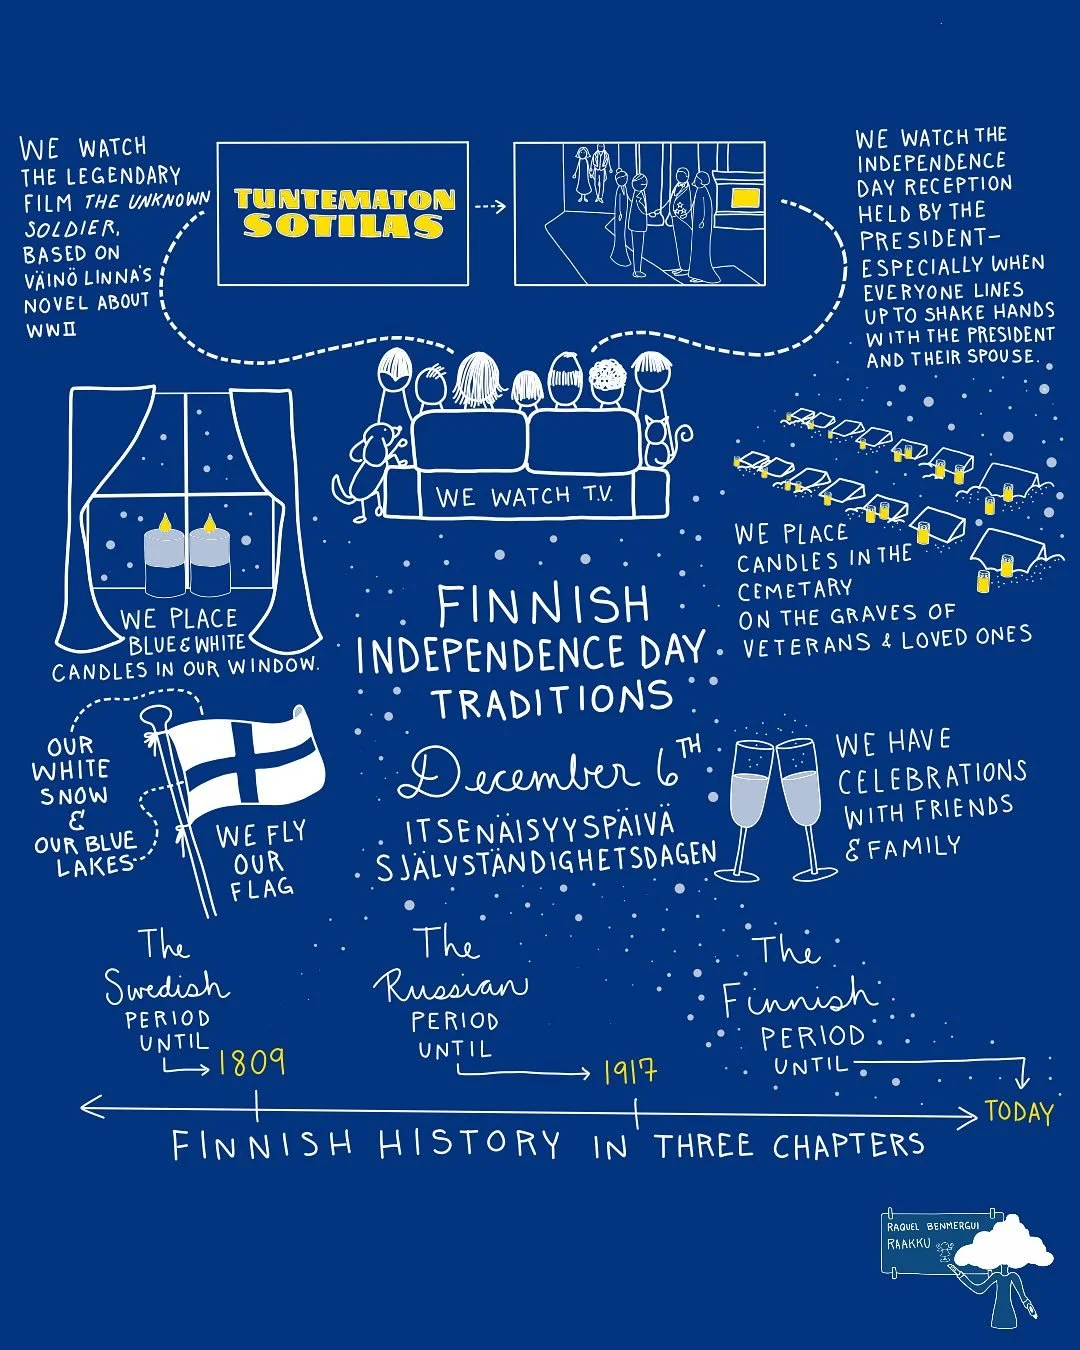 WE WATCH
THE LEGENDARY
FILM THE UNKNOWN
SOLDIER,
BASED ON
VÄINÖ LINNA'S
NOVEL ABOUT
WWII
TUNTEMATON
SOTILAS
WE WATCH THE
INDEPENDENCE
DAY RECEPTION
HELD BY THE
PRESIDENT–
ESPECIALLY WHEN
EVERYONE LINES
UP TO SHAKE HANDS
WITH THE PRESIDENT
AND THEIR SPOUSE.
WE WATCH T.V.
WE PLACE
BLUE & WHITE
CANDLES IN OUR WINDOW.
WE PLACE
CANDLES IN THE
CEMETARY
ON THE GRAVES OF
VETERANS & LOVED ONES
FINNISH
INDEPENDENCE DAY
TRADITIONS
December 6TH
ITSENÄISYYSPÄIVÄ
SJÄLVSTÄNDIGHETSDAGEN
OUR
WHITE
SNOW
&
OUR BLUE
LAKES
WE FLY
OUR
FLAG
WE HAVE
CELEBRATIONS
WITH FRIENDS
& FAMILY
The
Swedish
PERIOD
UNTIL
1809
The
Russian
PERIOD
UNTIL
1917
The
Finnish
PERIOD
UNTIL
TODAY
FINNISH HISTORY IN THREE CHAPTERS
RAQUEL BENMERGUI
RAAKKU